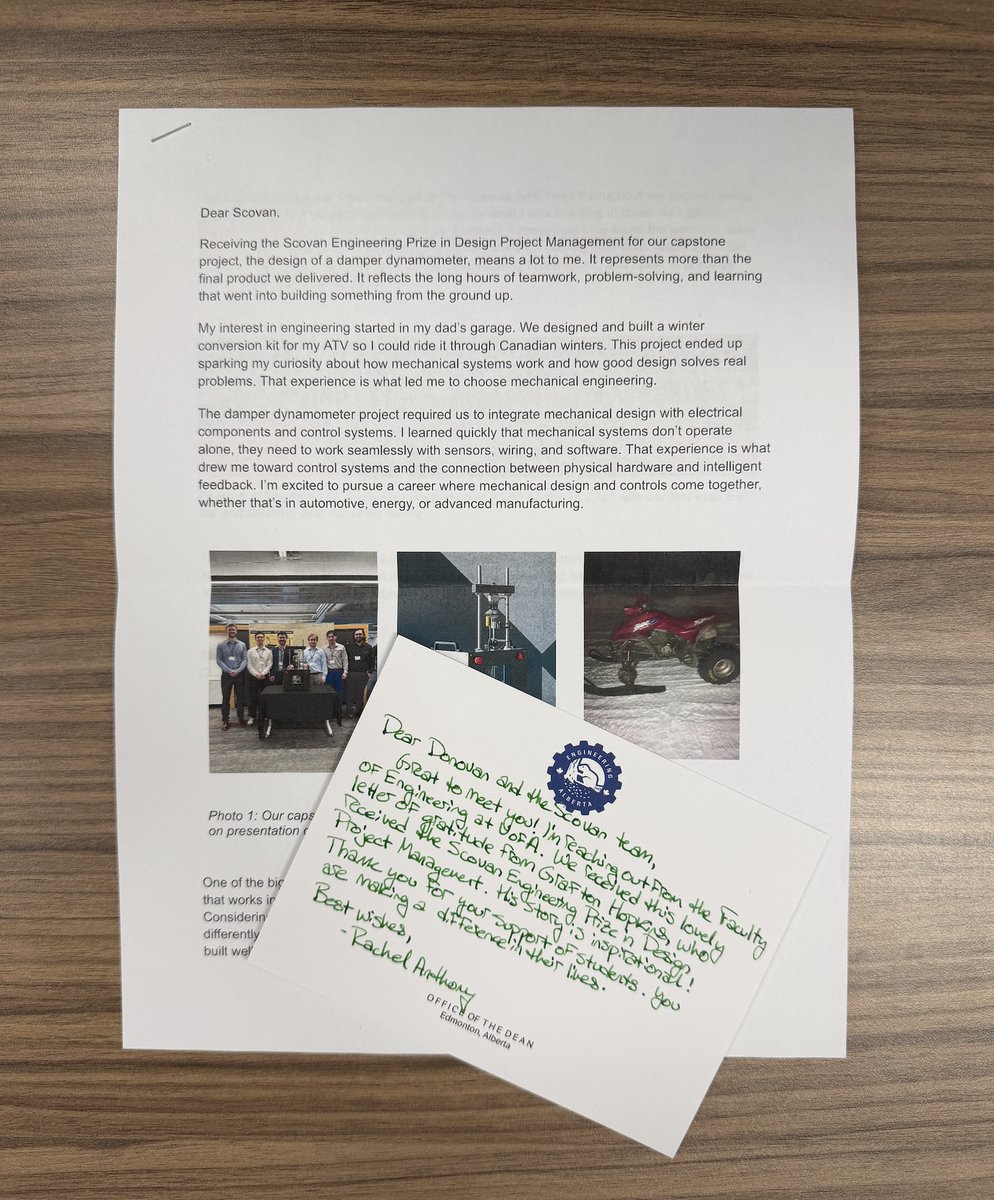 Dear Scovan,
Receiving the Scovan Engineering Prize in Design Project Management for our capstone
project, the design of a damper dynamometer, means a lot to me. It represents more than the
final product we delivered. It reflects the long hours of teamwork, problem-solving, and learning
that went into building something from the ground up.
My interest in engineering started in my dad's garage. We designed and built a winter
conversion kit for my ATV so I could ride it through Canadian winters. This project ended up
sparking my curiosity about how mechanical systems work and how good design solves real
problems. That experience is what led me to choose mechanical engineering.
The damper dynamometer project required us to integrate mechanical design with electrical
components and control systems. I learned quickly that mechanical systems don't operate
alone, they need to work seamlessly with sensors, wiring, and software. That experience is what
drew me toward control systems and the connection between physical hardware and intelligent
feedback. I'm excited to pursue a career where mechanical design and controls come together,
whether that's in automotive, energy, or advanced manufacturing.
Photo 1: Our caps
on presentation
One of the big
that works in
Considerin
differently
built wel
ENGINEERING
ALBERTA
Dear Donovan and the Scovan team,
Great to meet you! I'm reaching out from the Faculty
of Engineering at UofA. We received this lovely
letter of gratitude from Grafton Hopkins, who
received the Scovan Engineering Prize in Design
Project Management. His story is inspirational!
Thank you for your support of students. You
are making a difference in their lives.
Best wishes,
- Rachel Anthony
OFFICE OF THE DEAN
Edmonton, Alberta